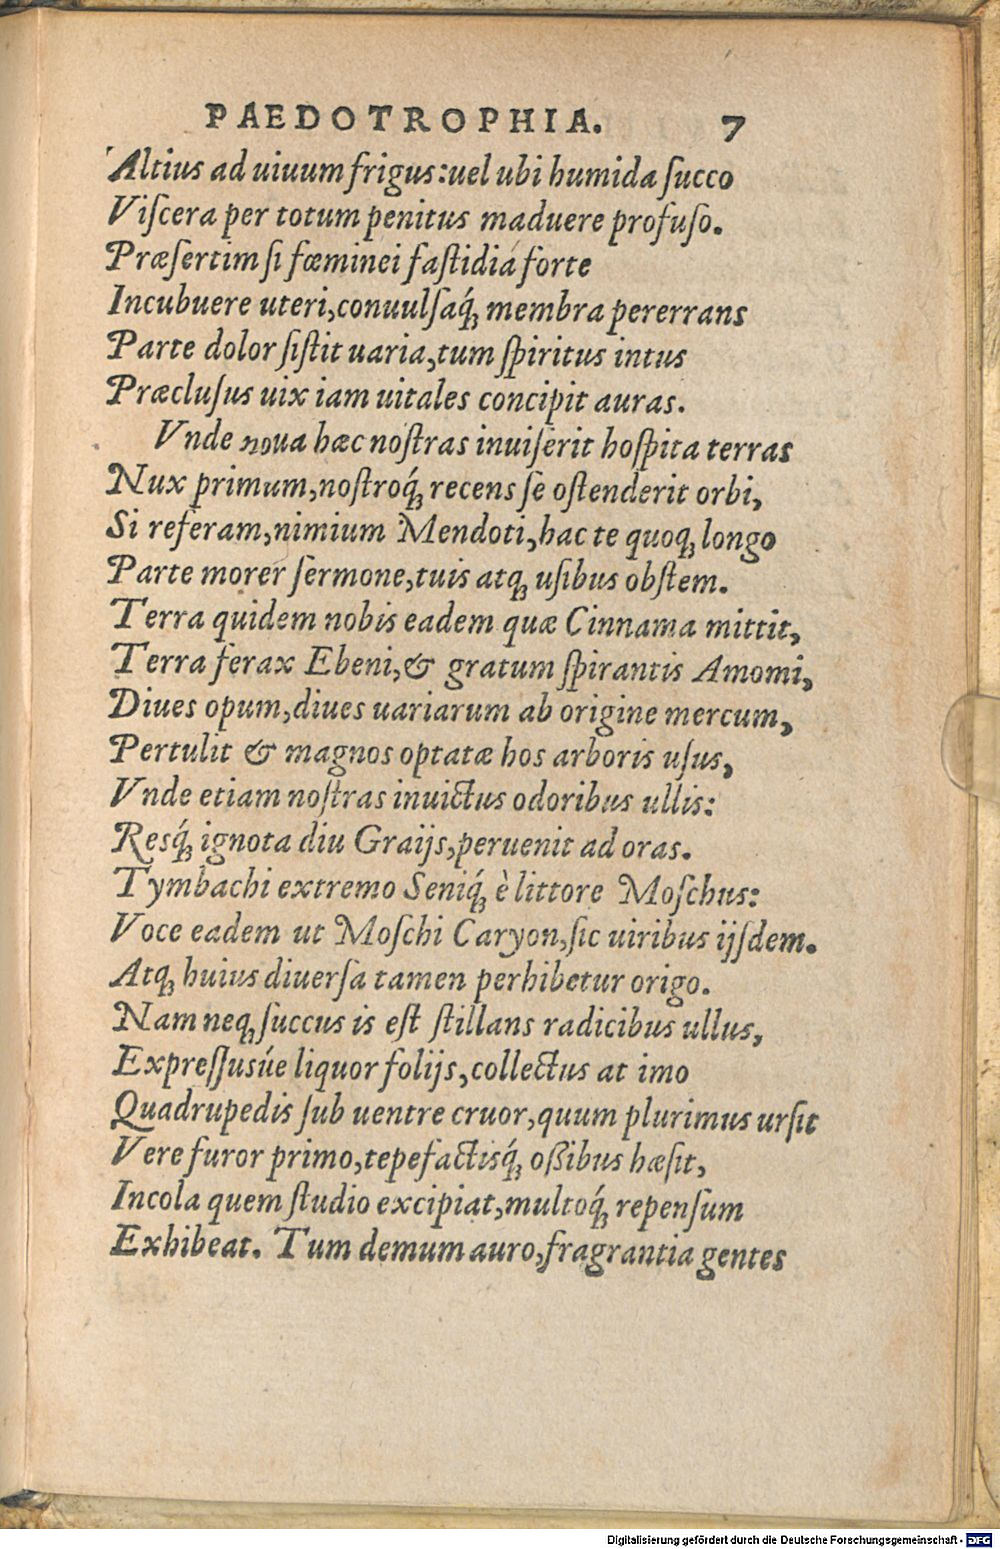 PAEDOTROPHIA. 7
Altius ad uiuum frigus: uel ubi humida ſucco
Viſcera per totum penitus maduere profuſo.
Præſertim ſi fœminei faſtidia forte
Incubuere uteri, conuulſaq́; membra pererrans
Parte dolor ſiſtit uaria, tum ſpiritus intus
Præcluſus uix iam uitales concipit auras.
Vnde noua hæc noſtras inuiſerit hoſpita terras
Nux primum, noſtroq́; recens ſe oſtenderit orbi,
Si referam, nimium Mendoti, hac te quoq; longo
Parte morer ſermone, tuis atq; uſibus obſtem.
Terra quidem nobis eadem quæ Cinnama mittit,
Terra ferax Ebeni, & gratum ſpirantis Amomi,
Diues opum, diues uariarum ab origine mercum,
Pertulit & magnos optatæ hos arboris uſus,
Vnde etiam noſtras inuictus odoribus ullis:
Resq́; ignota diu Graijs, peruenit ad oras.
Tymbachi extremo Seniq́; è littore Moſchus:
Voce eadem ut Moſchi Caryon, ſic uiribus ijſdem.
Atq; huius diuerſa tamen perhibetur origo.
Nam neq; ſuccus is eſt ſtillans radicibus ullus,
Expreſſusúe liquor folijs, collectus at imo
Quadrupedis ſub uentre cruor, quum plurimus urſit
Vere furor primo, tepefactisq́; oßibus hæſit,
Incola quem ſtudio excipiat, multoq́; repenſum
Exhibeat. Tum demum auro, fragrantia gentes
Digitalisierung gefördert durch die Deutsche Forschungsgemeinschaft - DFG